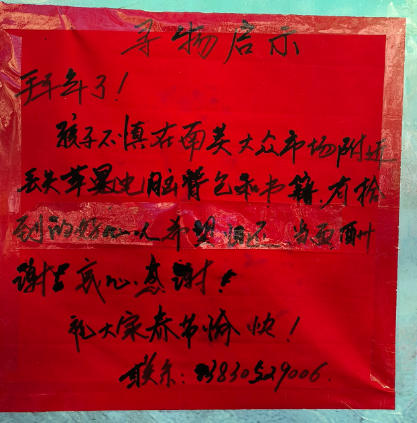 寻物启示
拜年了！
孩子不慎在南关大众市场附近
丢失苹果电脑背包和书籍.有拾
到的好心人希望归还 当面酬
谢！衷心感谢！
祝大家春节愉快！
联系：13830529006.